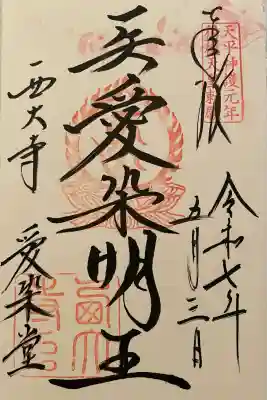 奉拝
天平神護元年
令和七年
五月三日
愛染明王
西大寺
愛染堂